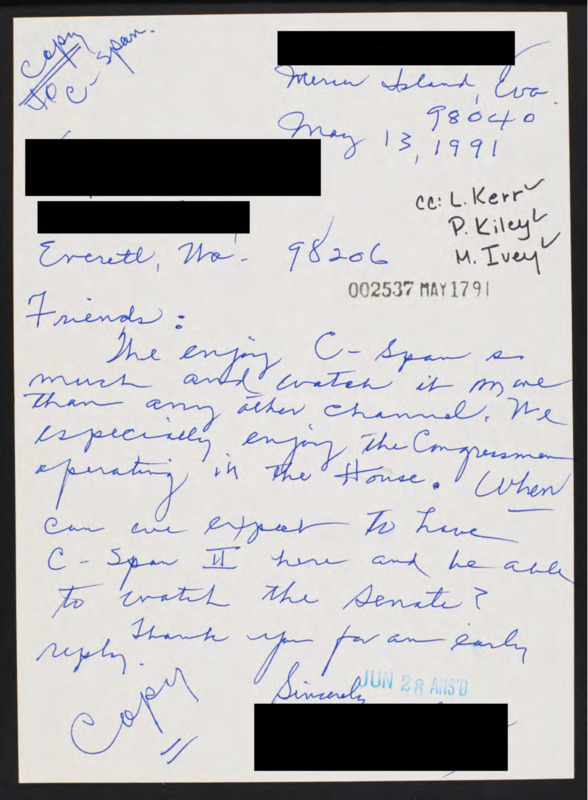 Copy
to C-Span.
Mercer Island, Wa.
98040
May 13, 1991
cc: L. Kerr ✓
P. Kiley ✓
M. Ivey ✓
Everett, Wa. 98206
002537 MAY1791
Friends:
We enjoy C-Span so
much and watch it more
than any other channel. We
especially enjoy the Congressmen
operating in the House. When
can we expect to have
C-Span II here and be able
to watch the Senate?
Thank you for an early
reply.
JUN 28 ANS'D
Sincerely
Copy